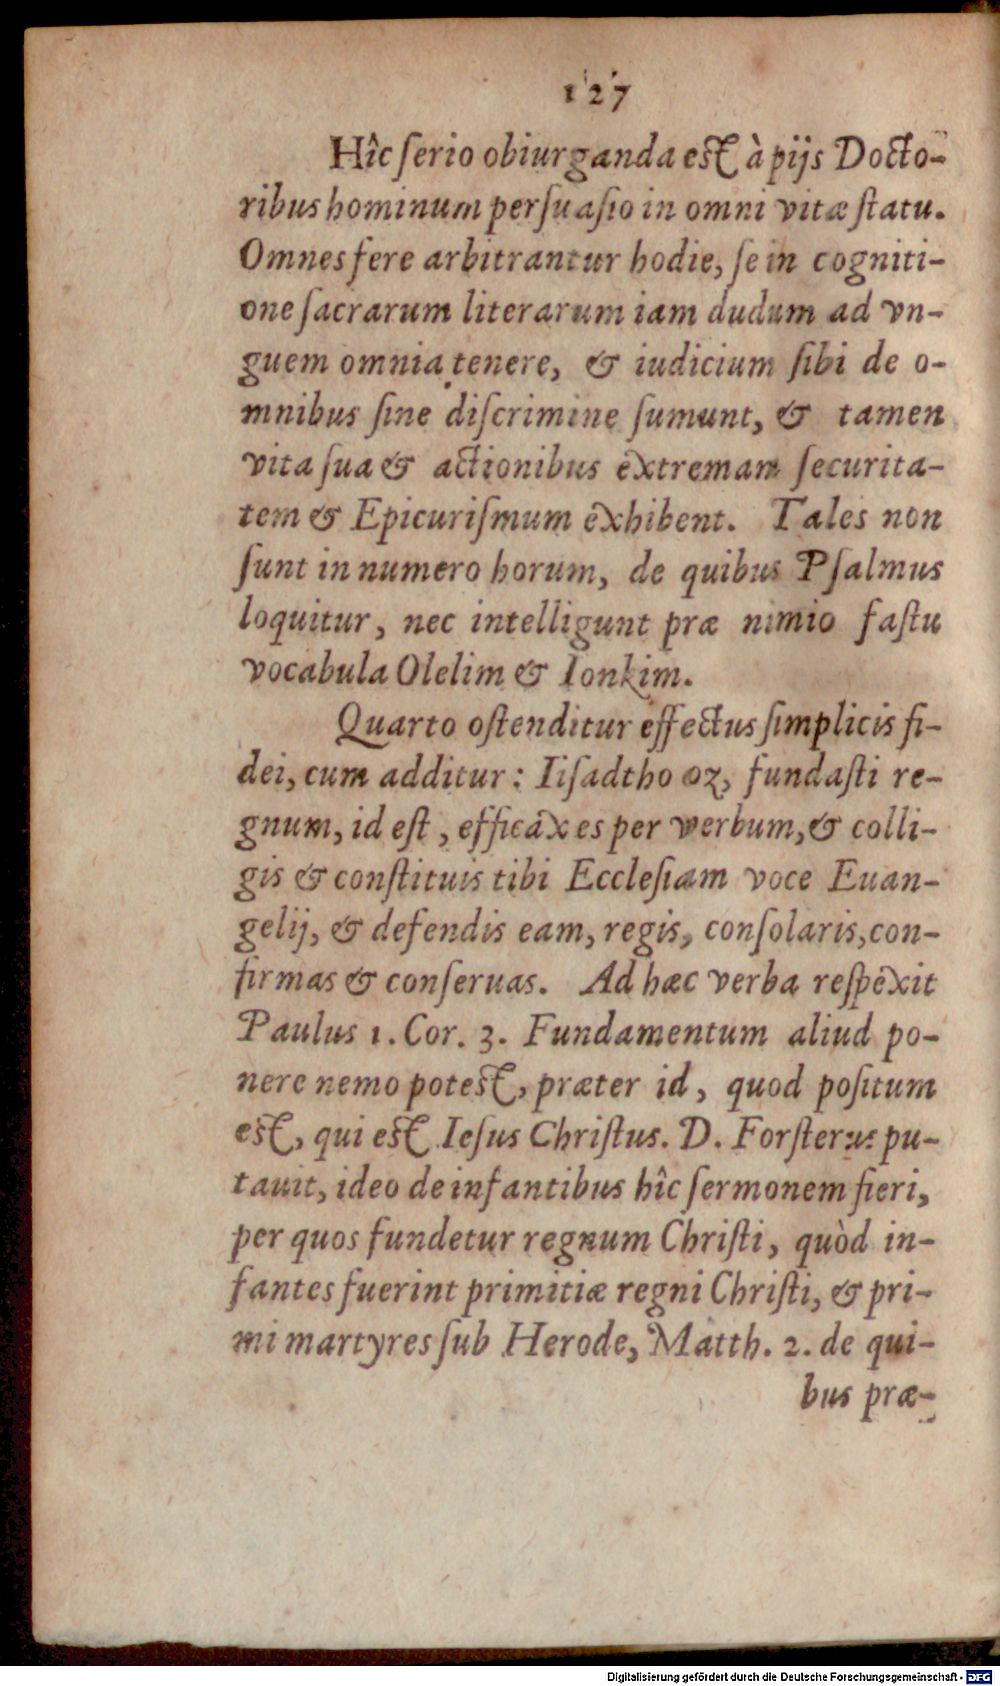 127
Hîc ſerio obiurganda eſt à pijs Docto-
ribus hominum perſuaſio in omni vitæ ſtatu.
Omnes fere arbitrantur hodie, ſe in cogniti-
one ſacrarum literarum iam dudum ad vn-
guem omnia tenere, & iudicium ſibi de o-
mnibus ſine diſcrimine ſumunt, & tamen
vita ſua & actionibus extremam ſecurita-
tem & Epicuriſmum exhibent. Tales non
ſunt in numero horum, de quibus Pſalmus
loquitur, nec intelligunt præ nimio faſtu
vocabula Olelim & Ionkim.
Quarto oſtenditur effectus ſimplicis fi-
dei, cum additur: Iiſadtho oz, fundaſti re-
gnum, id eſt, efficax es per verbum, & colli-
gis & conſtituis tibi Eccleſiam voce Euan-
gelij, & defendis eam, regis, conſolaris, con-
firmas & conſeruas. Ad hæc verba reſpexit
Paulus 1. Cor. 3. Fundamentum aliud po-
nere nemo poteſt, præter id, quod poſitum
eſt, qui eſt Ieſus Chriſtus. D. Forſterus pu-
tauit, ideo de infantibus hîc ſermonem fieri,
per quos fundetur regnum Chriſti, quòd in-
fantes fuerint primitiæ regni Chriſti, & pri-
mi martyres ſub Herode, Matth. 2. de qui-
bus præ-
Digitalisierung gefördert durch die Deutsche Forschungsgemeinschaft - DFG